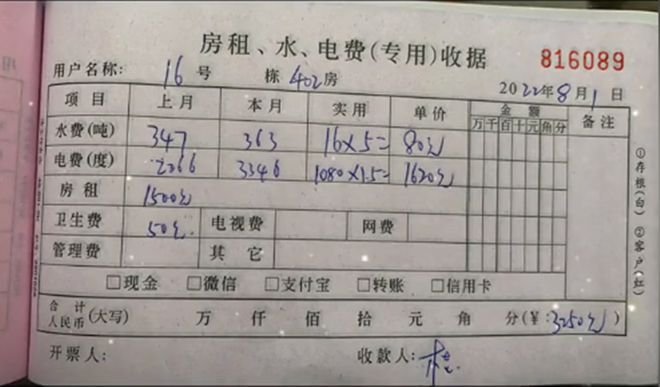 房租、水、电费(专用)收据 816089
用户名称: 16号 栋402房 2022年8月1日
项目 上月 本月 实用 单价 金额 备注
万千百十元角分
水费(吨) 347 363 16×5= 80元
电费(度) 2266 3346 1080×1.5= 1620元
房租 1500元
卫生费 50元 电视费 网费
管理费 其它
□现金 □微信 □支付宝 □转账 □信用卡
合计人民币(大写) 万仟佰拾元角分(¥:3250元)
开票人: 收款人:
①存根(白) ②客户(红)